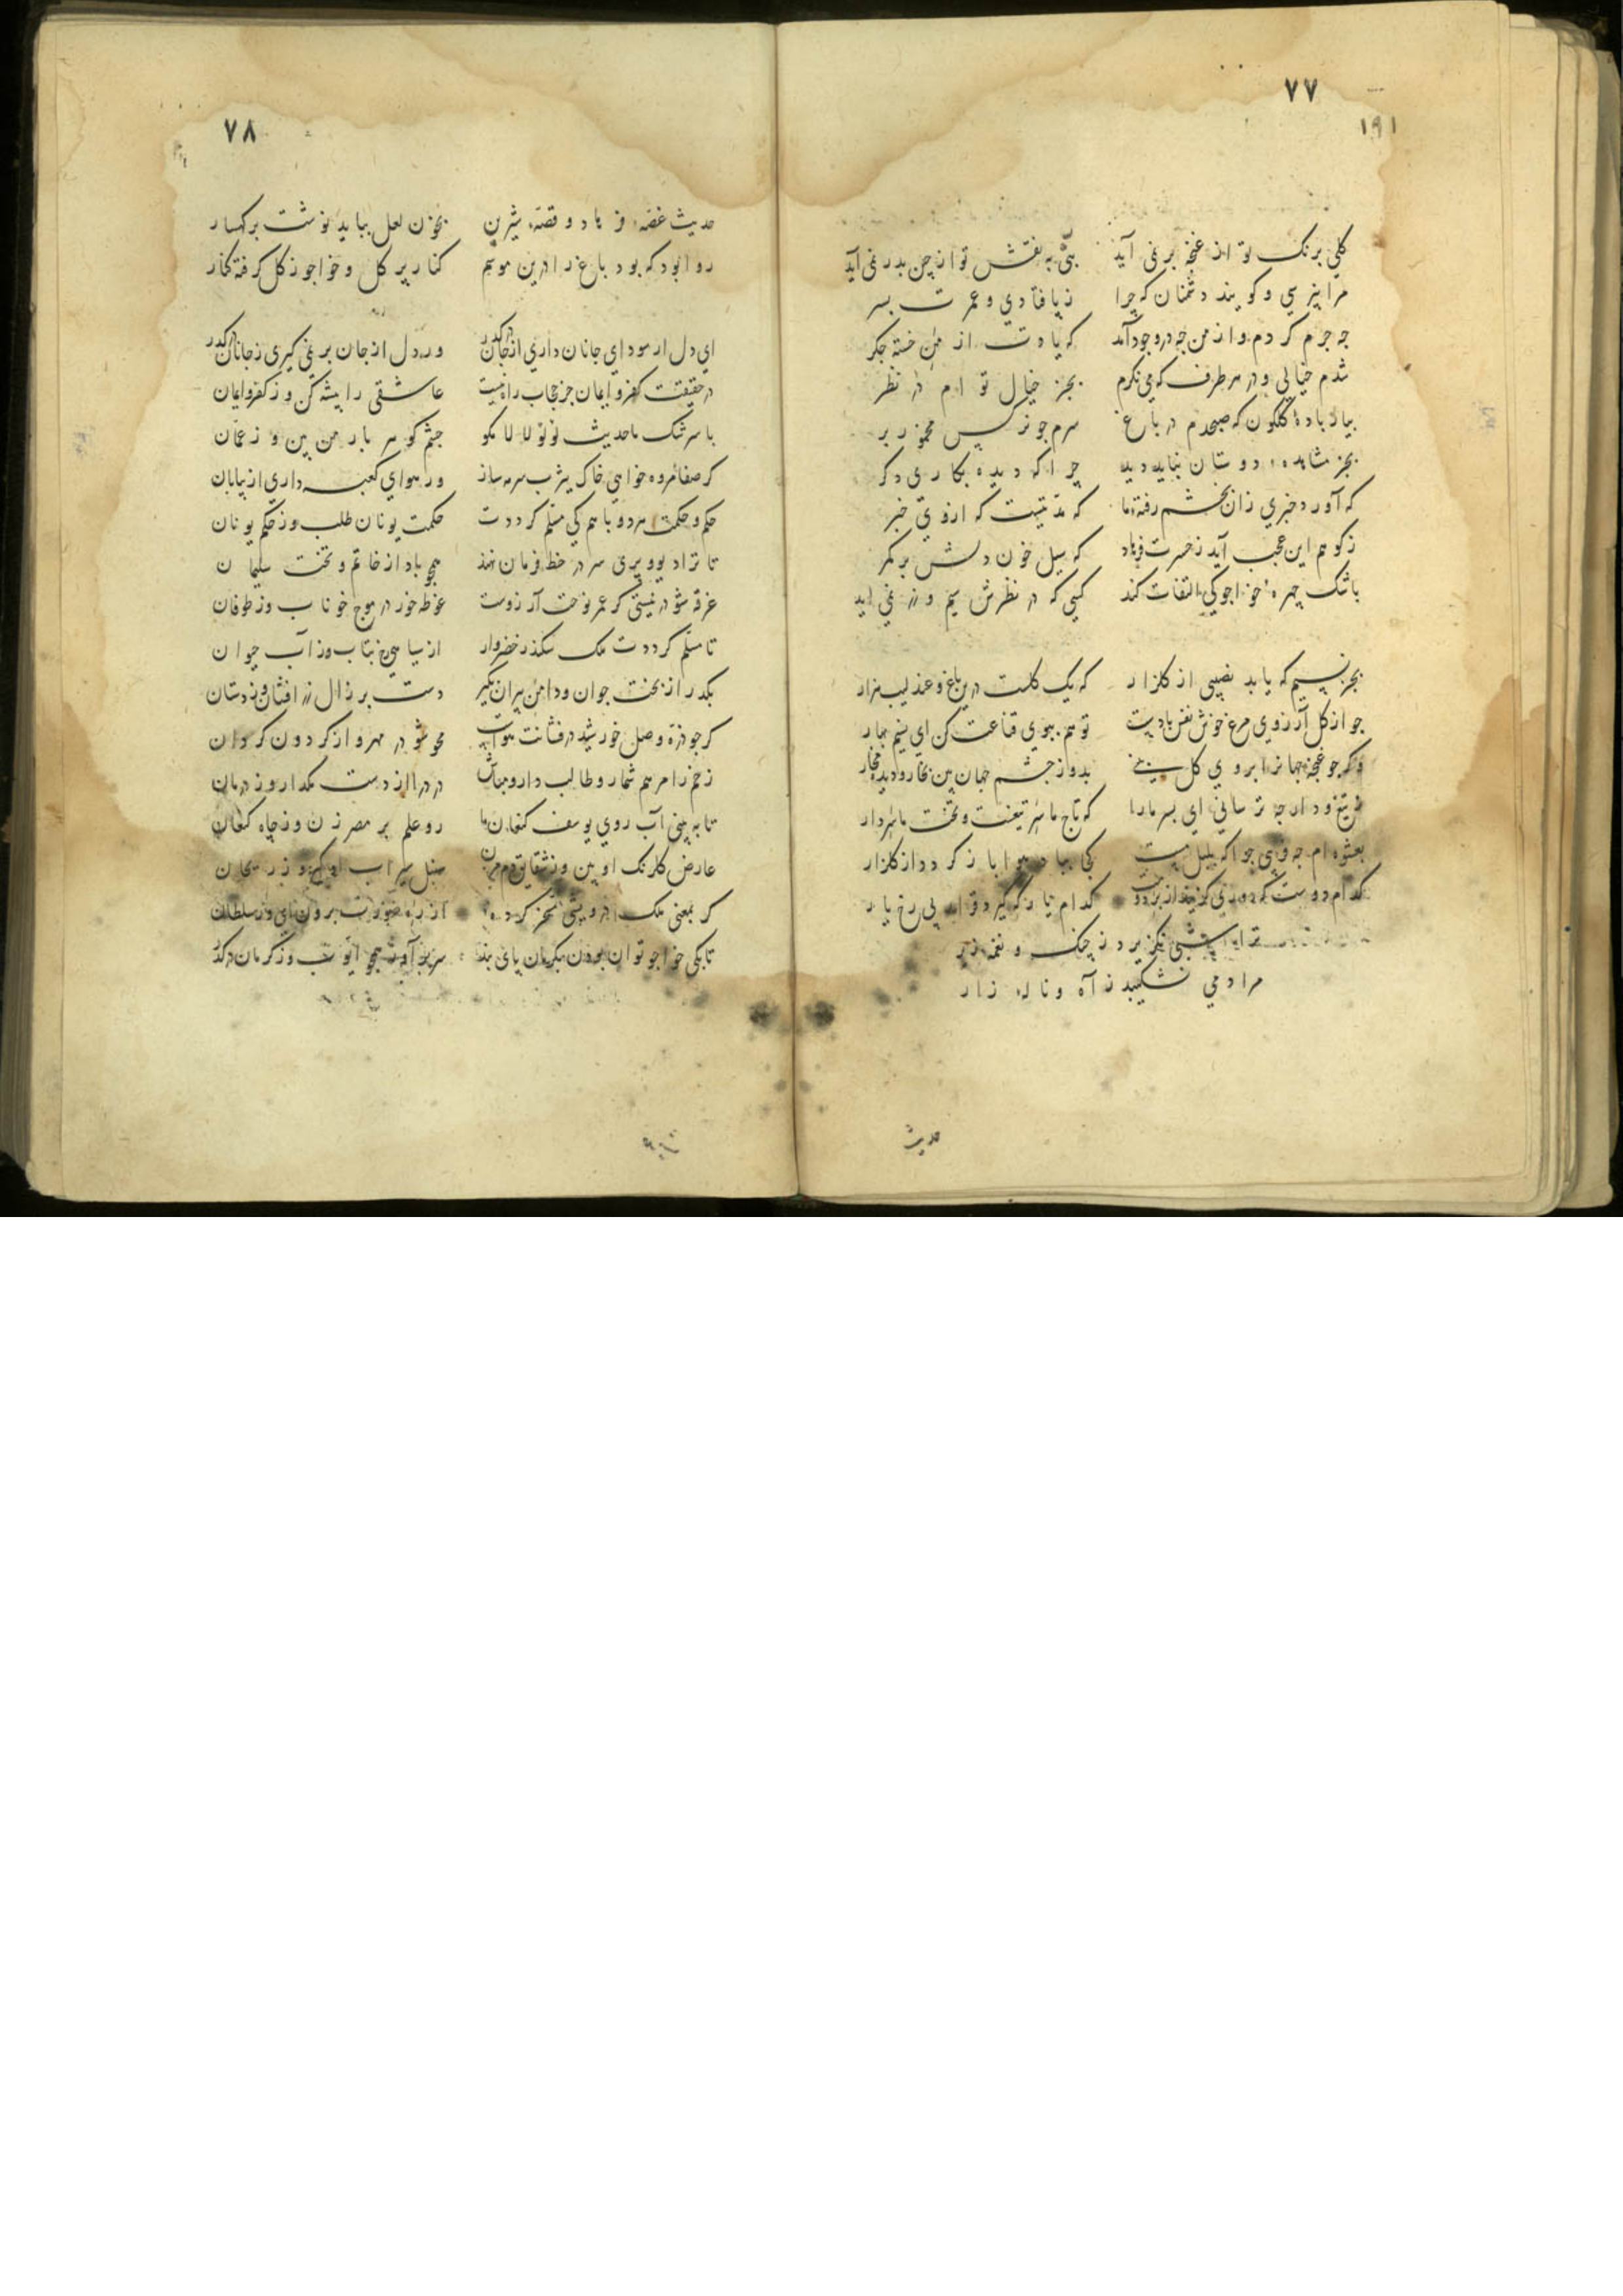 ٧٧
١٩١
كلي برنك تو از غنچه بر نمی آید بتی به نقش تو از چین بدر نمی آید
مرا پرسي و كويند دشمنان كه چرا ز پا فتادي و عمرت بسر
چه جرم كردم و از من چه در وجود آمد كه یادت از من خسته جكر
شدم خيالي و در هر طرف كه مي نكرم بجز خيال تو ام در نظر
بیار بادهٔ كلكون كه صبحدم در باغ سرم چو نركس مخمور بر
بجز مشاهدهٔ دوستان نباید دید چرا كه دیده بكاری دكر
كه آورد خبري زان بخشم رفتهٔ ما كه مدتیست كه از وي خبر
ز كوهم این عجب آید ز حسرت فرهاد كه سیل خون دلش بر كمر
باشك چهرهٔ خواجو كی التفات كند كسي كه در نظرش سيم و زر نمي آید
بجز نسیم كه یابد نصیبی از كلزار كه یك كلست درین باغ و عندلیب هزار
چو از كل آرزوي مرغ خوش نفس بادیست تو هم ببوي قناعت كن اي نسیم بهار
وكر چو غنچه جهانرا بروي كل بینی بدوز چشم جهان بین بخار و دیده مخار
ز تیغ و دار چه ترساني اي پسر ما را كه تاج ما سر تیغست و تخت ما سر دار
بعشوه ام چه فریبي چرا كه بلبل مست كجا بباد هوا باز كردد از كلزار
كدام دوست كه دوري كزیند از بر دوست كدام یار كه كیرد قرار بی رخ یار
ترا شبی نكزیرد ز چنك و نغمهٔ زیر
مرا دمي نشكیبد ز آه و نالهٔ زار
حدیث
٧٨
حدیث غصهٔ فرهاد و قصهٔ شیرین بخون لعل بباید نوشت بر كهسار
روا بود كه بود باغ را درین موسم كنار پر كل و خواجو ز كل كرفته كنار
اي دل ار سوداي جانان داري از جان در كذر ور ز دل از جان بر نمی كیری ز جانان در كذر
در حقیقت كفر و ایمان جز حجاب راه نیست عاشقی را پیشه كن وز كفر و ایمان
با سرشك ما حدیث لؤلؤ لالا مكو چشم كوهر بار من بین وز عمان
كر صفا و مروه خواهي خاك یثرب سرمه ساز ور هواي كعبه داري از بیابان
حكم و حكمت هر دو با هم كی مسلم كرددت حكمت یونان طلب وز حكم یونان
تا ترا دیو و پری سر در خط فرمان نهند همچو باد از خاتم و تخت سلیمان
غرقه شو در نیستی كر عمر نوحت آرزوست غوطه خور در موج خوناب وز طوفان
تا مسلم كرددت ملك سكندر خضروار از سیاهي رخ بتاب وز آب حیوان
بكذر از بخت جوان و دامن پیران بكیر دست بر زال زر افشان وز دستان
كر چو ذره وصل خورشید درفشانت هواست محو شو در مهر و از كردون كردان
زخم را مرهم شمار و طالب دارو مباش درد را از دست مكذار وز درمان
تا ببینی آب روي یوسف كنعان ما رو علم بر مصر زن وز چاه كنعان
عارض كلرنك او بین وز شقایق دم مزن سنبل سیراب او كیر وز ریحان
كر بمعنی ملك درویشي مسخر كرده‌ از ره صورت برون آي وز سلطان
تا بكی خواجو توان بودن بكرمان پای بند سر بر آور همچو ایوب وز كرمان در كذر